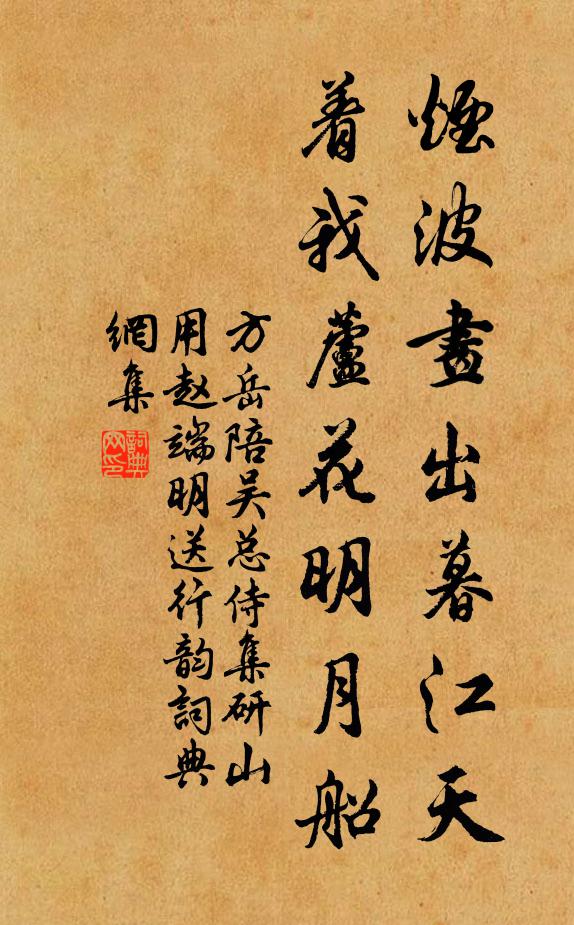 煙波畫出暮江天
着我蘆花明月船
方岳陪吴总侍集研山
用赵端明送行韵詞典
網集
詞典
网印